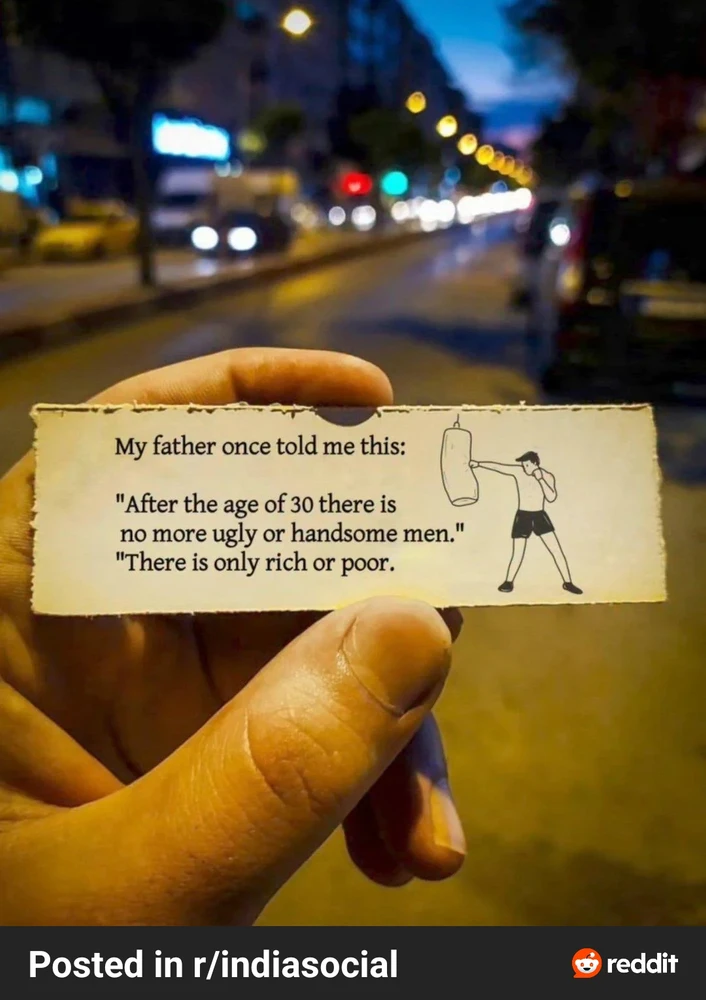 My father once told me this:
"After the age of 30 there is
no more ugly or handsome men."
"There is only rich or poor.
Posted in r/indiasocial
reddit